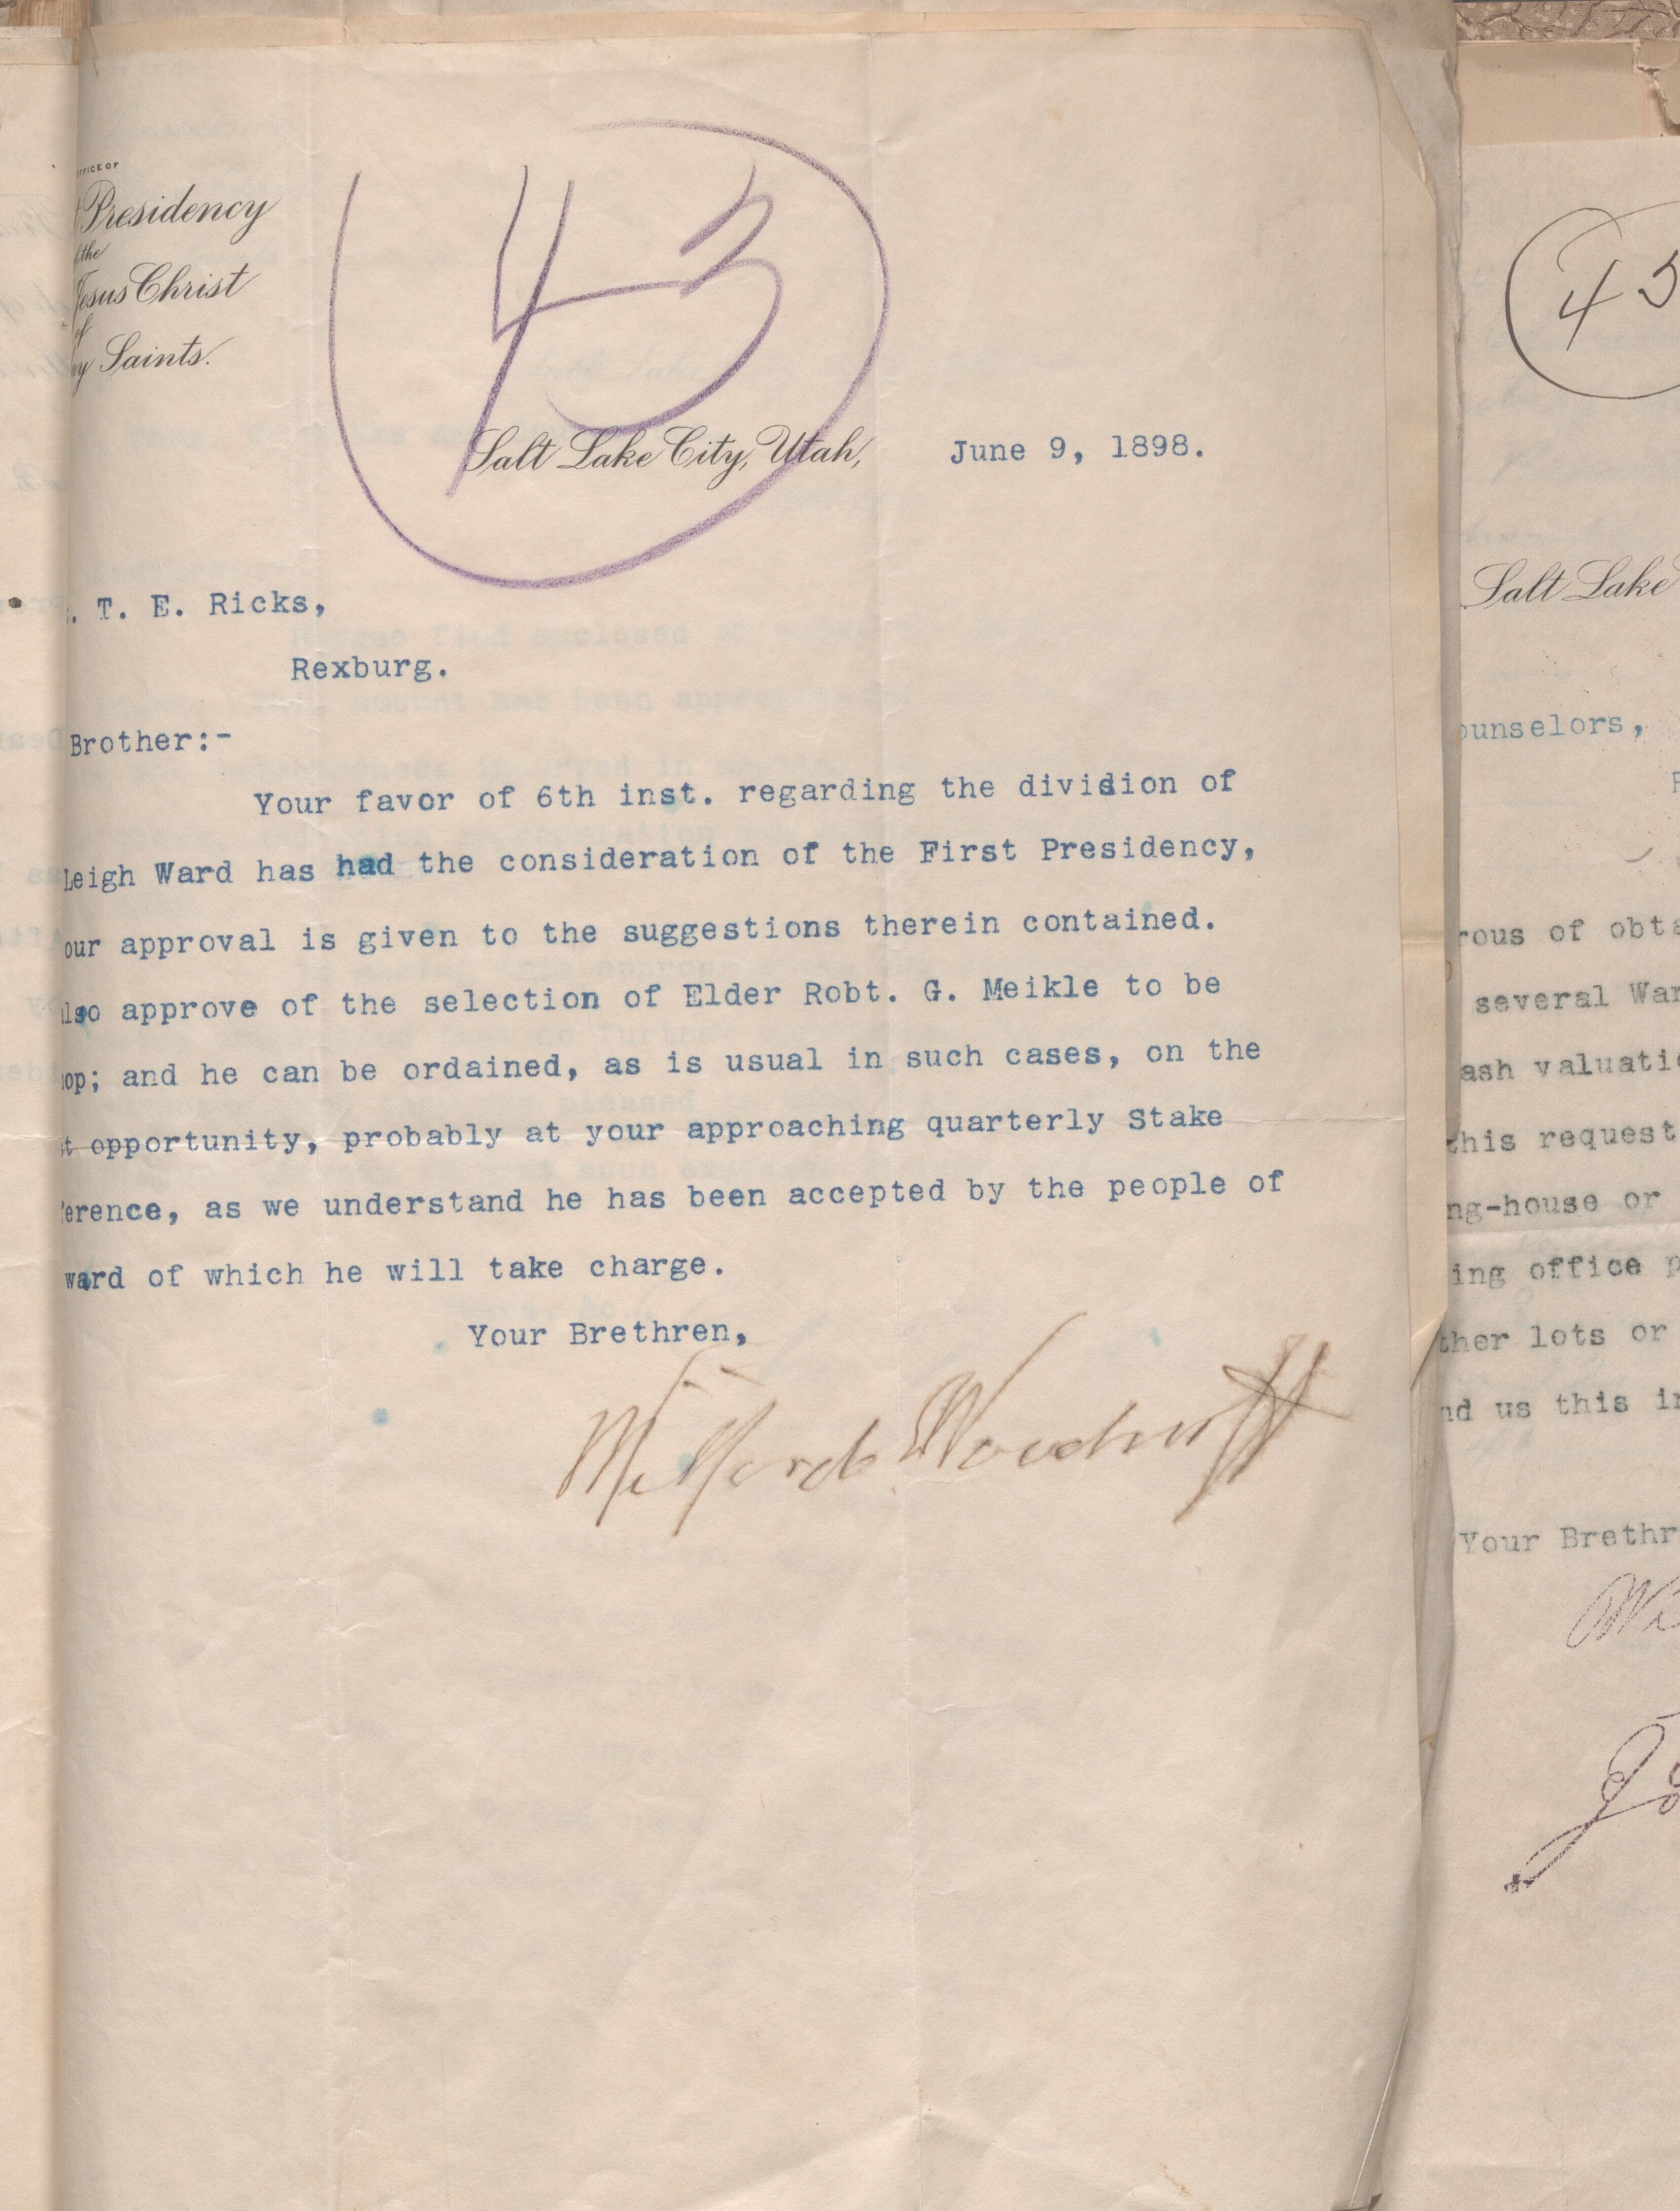 OFFICE OF
Presidency
the
Jesus Christ
of
Saints.
43
Salt Lake City, Utah, June 9, 1898.
T. E. Ricks,
Rexburg.
Brother:-
Your favor of 6th inst. regarding the division of
Leigh Ward has had the consideration of the First Presidency,
our approval is given to the suggestions therein contained.
also approve of the selection of Elder Robt. G. Meikle to be
hop; and he can be ordained, as is usual in such cases, on the
st opportunity, probably at your approaching quarterly Stake
ference, as we understand he has been accepted by the people of
ward of which he will take charge.
Your Brethren,
Wilford Woodruff
43
Salt Lake
ounselors,
rous of obta
several War
ash valuatio
this request
ng-house or
ing office p
ther lots or
nd us this in
Your Brethr
Wi
Jo